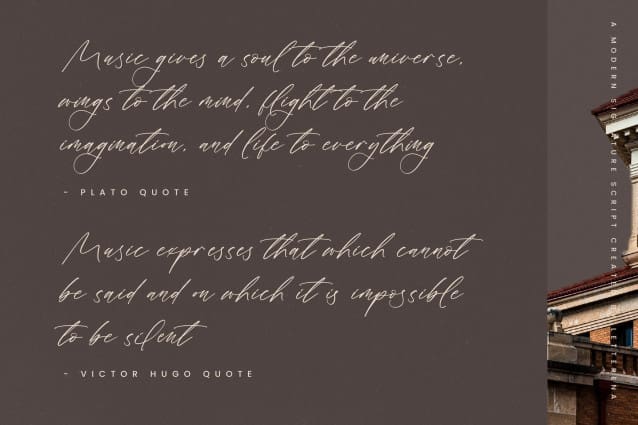 Music gives a soul to the universe,
wings to the mind, flight to the
imagination, and life to everything
- PLATO QUOTE
Music expresses that which cannot
be said and on which it is impossible
to be silent
- VICTOR HUGO QUOTE
A MODERN SIGNATURE SCRIPT